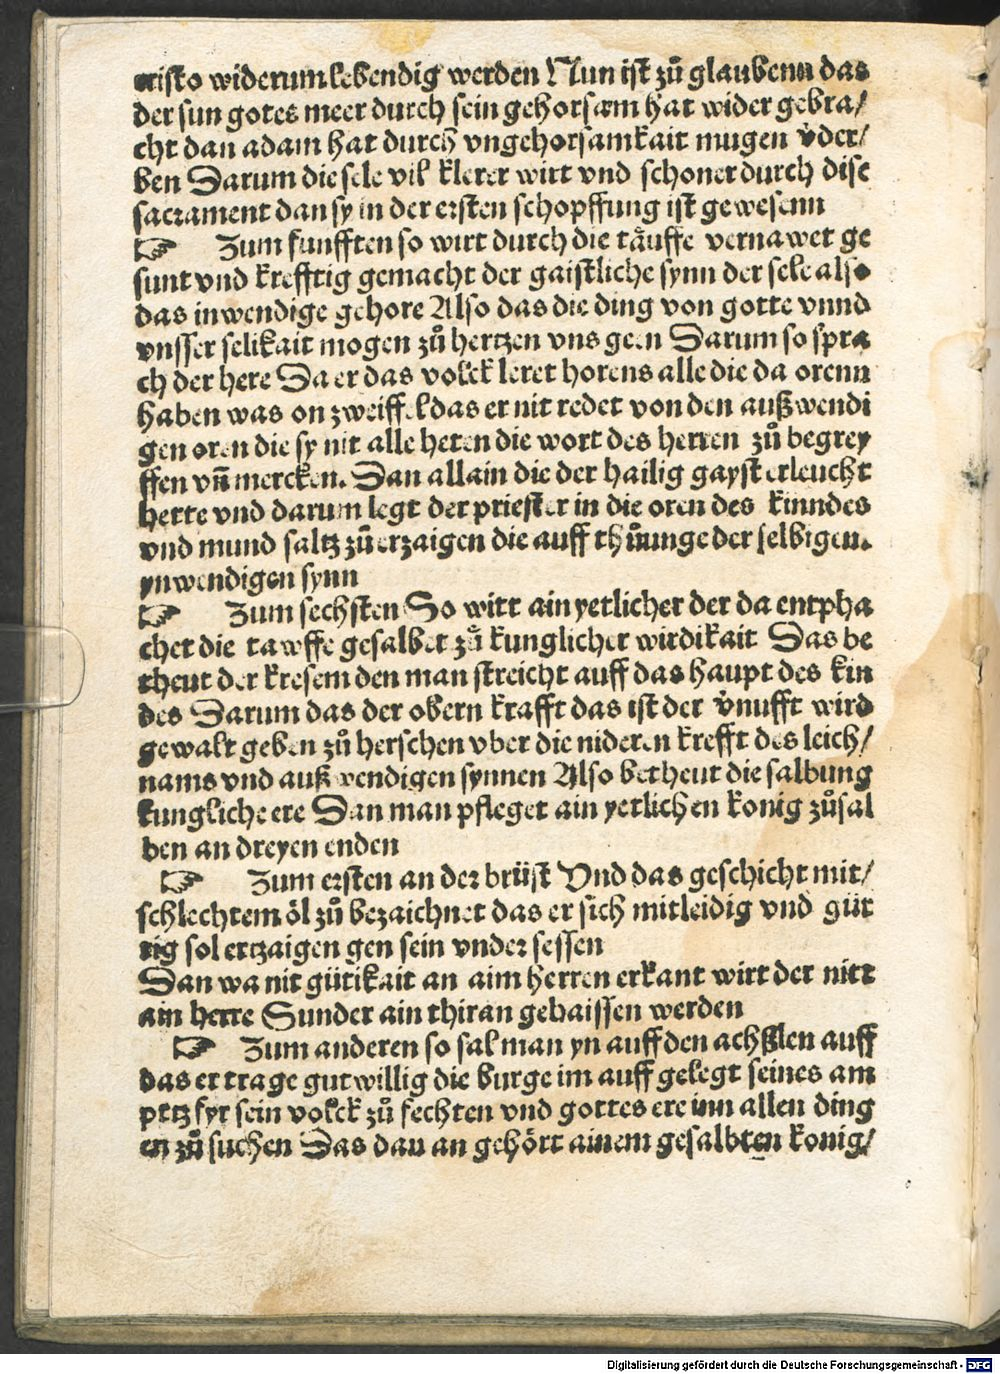 cristo widerum lebendig werden Nun ist zů glaubenn das
der sun gotes meer durch sein gehorsam hat wider gebra/
cht dan adam hat durch vngehorsamkait mugen v̉der/
ben Darum die sele vil klerer wirt vnd schoner durch dise
sacrament dan sy in der ersten schopffung ist gewesenn
☞ Zum funfften so wirt durch die tåuffe vernawet ge
sunt vnd krefftig gemacht der gaistliche synn der sele also
das inwendige gehore Also das die ding von gotte vnnd
vnsser selikait mogen zů hertzen vns geen Darum so spra
ch der here Da er das volck leret horens alle die da orenn
haben was on zweiffel das er nit redet von den außwendi
gen oren die sy nit alle heten die wort des herren zů begrey
ffen vn̄ mercken. Dan allain die der hailig gayst erleucht
herte vnd darum legt der priester in die oren des kinndes
vnd mund saltz zů erzaigen die auff thůunge der selbigen.
ynwendigen synn
☞ Zum sechsten So wirt ain yetlicher der da entpha
chet die tawffe gesalbet zů kunglicher wirdikait Das be
theut der kresem den man streicht auff das haupt des kin
des Darum das der obern krafft das ist der v̉nufft wird
gewalt geben zů herschen vber die nideren krefft des leich/
nams vnd außwendigen synnen Also betheut die salbung
kungliche ere Dan man pfleget ain yetlichen konig zůsal
ben an dreyen enden
☞ Zum ersten an der brüst Vnd das geschicht mit/
schlechtem öl zů bezaichnet das er sich mitleidig vnd güt
tig sol ertzaigen gen sein vnder sessen
Dan wa nit gütikait an aim herren erkant wirt der nitt
ain herre Sunder ain thiran gehaissen werden
☞ Zum anderen so sal man yn auff den achßlen auff
das er trage gutwillig die burge im auff gelegt seines am
ptz fyr sein volck zů fechten vnd gottes ere inn allen ding
en zů suchen Das dan an gehört ainem gesalbten konig/
Digitalisierung gefördert durch die Deutsche Forschungsgemeinschaft - DFG